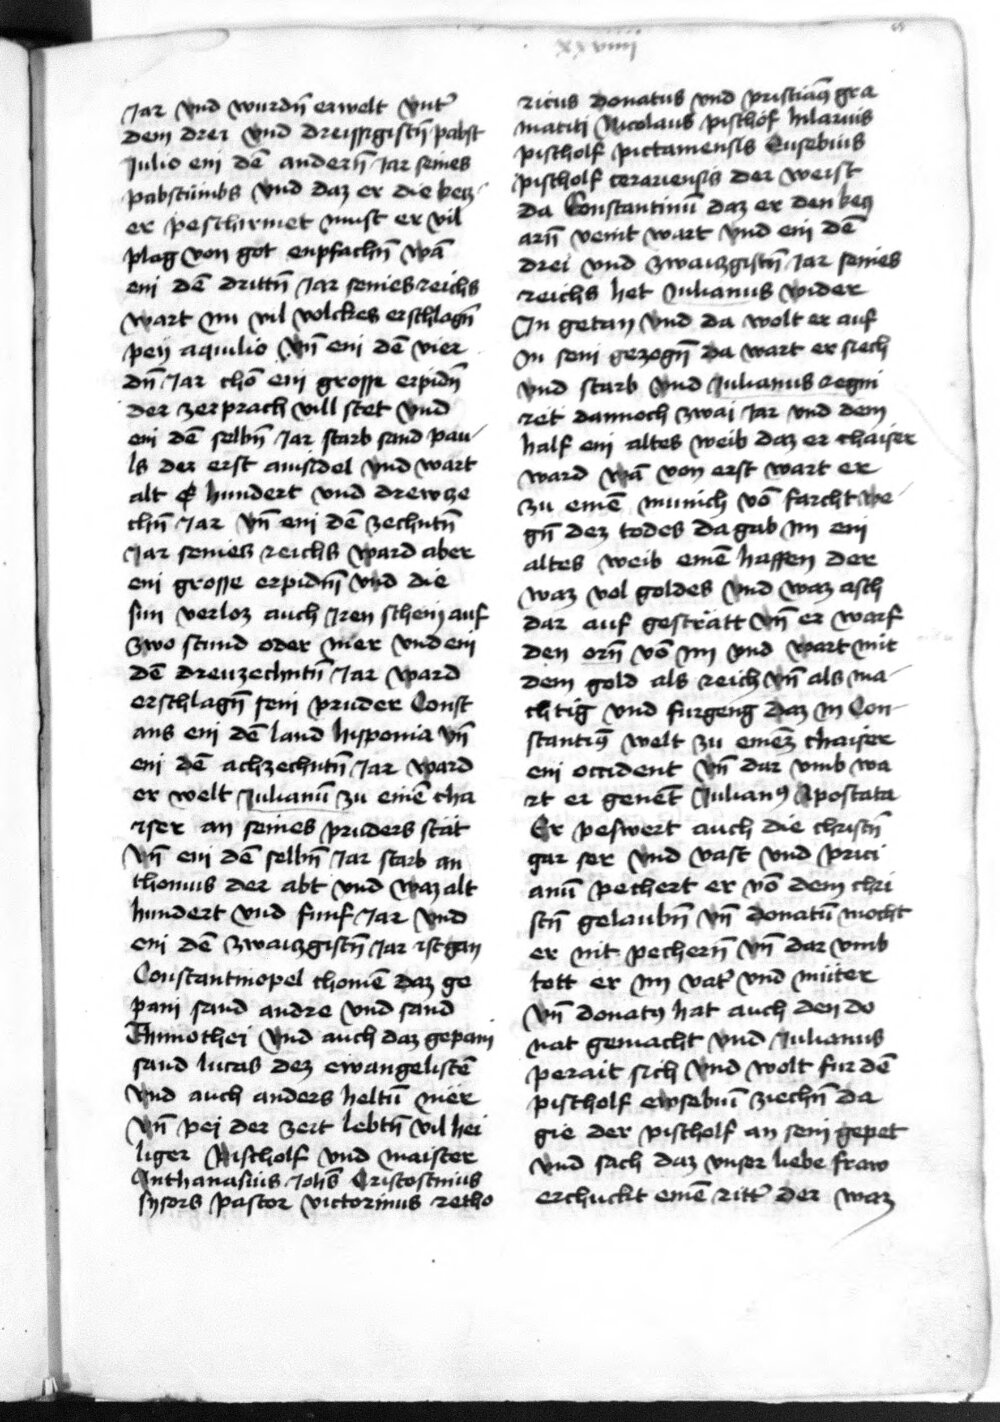 xxviiii
Jar vnd wurdn̄ erwelt vnt᷑
dem drei vnd dreissigistn̄ pabst
Julio ein dē andern̄ Jar seines
pabstumbs vnd daz er die kecz
er peschirmet must er vil
plag von got enpfachn̄ wā
ein dē drittn̄ Jar seines reichs
wart im vil volckes erschlagn̄
peij aquilio vn̄ ein dē vier
dn̄ Jar chō ein grosse erpidn̄
der zerprach vill stet vnd
ein dē selbn̄ Jar starb sand pau
ls der erst ainsidel vnd wart
alt hundert vnd drewze
chn̄ Jar vn̄ ein dē zechntn̄
Jar seines reichs ward aber
ein grosse erpidn̄ vnd die
sun verloz auch Jren schein auf
zwo stund oder mer vnd ein
dē dreuzechntn̄ Jar ward
erschlagn̄ sein pruder Const
ans ein dē land hisponia vn̄
ein dē achzechntn̄ Jar ward
er welt Julianū zu einē cha
iser an seines pruders stat
vn̄ ein dē selbn̄ Jar starb an
thonius der abt vnd waz alt
hundert vnd funf Jar vnd
ein dē zwaiczgistn̄ Jar ist gan
Constantinopel chomē daz ge
pain sand andre vnd sand
Thimothei vnd auch daz gepain
sand lucas dez ewangelistē
vnd auch anders heltū mer
vn̄ pei der zeit lebtn̄ vil hei
liger Pischolf vnd maister
Anthanasius Johs̄ Cristostmus
pastor victorinus retho
ricus donatus vnd pristian9 gra
matiti Nicolaus pischof hilarius
pischolf pictamensis Eusebius
pischolf cerariensis der weist
da Constantinū daz er den kecz
arn̄ veint wart vnd ein dē
drei vnd zwaiczgistn̄ Jar seines
reichs het Julianus wider
In getan vnd da wolt er auf
in sein gezogn̄ da wart er siech
vnd starb vnd Julianus regni
reit dannoch zwai Jar vnd dem
half ein altes weib daz er chaiser
ward wā von erst wart er
zu einē munich vō farcht we
gn̄ dez todes da gab im ein
altes weib einē haffen der
waz vol goldes vnd waz asch
dar auf gesträtt vn̄ er warf
den orn̄ vō im vnd wart mit
dem gold als reich vn̄ als ma
chtig vnd furgeng daz in Con
stanti9 welt zu einez̄ chaiser
ein occident vn̄ dar vmb wa
rt er genēt Julian9 Apostata
Er peswert auch die christn̄
gar ser vnd vast vnd prici
anū pechert er vō dem chri
stn̄ gelaubn̄ vn̄ donatū mocht
er nit pechern̄ vn̄ dar vmb
tott er im vat᷑ vnd müter
vn̄ donat9 hat auch den do
nat gemacht vnd Julianus
perait sich vnd wolt fur dē
pischolf ewsebiū ziechn̄ da
gie der pischolf an sein gepet
vnd sach daz vnser liebe fraw
erchuckt einē ritt᷑ der waz